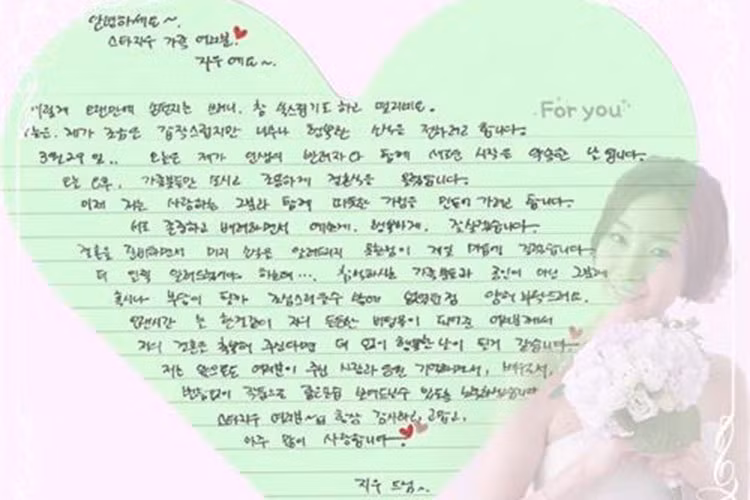 안녕하세요~.
스타지우 가족 여러분.
지우예요~.
이렇게 오랜만에 손편지를 쓰려니, 참 쑥스럽기도 하고 떨리네요.
For you
오늘은, 제가 조금은 갑작스럽지만 너무나 행복한 소식을 전하려고 합니다.
3월 29일.. 오늘은 제가 인생의 반려자와 함께 새로운 시작을 약속한 날입니다.
오늘 오후, 가족분들만 모시고 조용하게 결혼식을 올렸습니다.
이제 저는 사랑하는 그분과 함께 따뜻한 가정을 만들어 가려고 합니다.
서로 존중하고 배려하면서 예쁘게, 행복하게, 잘 살겠습니다.
결혼을 준비하면서 미리 소식을 알려드리지 못한점이 제일 마음에 걸렸습니다.
더 일찍 알려드렸어야 하는데···, 참석하시는 가족분들과 공인이 아닌 그분께
혹시나 부담이 될까 조심스러울수 밖에 없었던점 양해 부탁드려요.
오랜시간 늘 한결같이 저의 든든한 버팀목이 되어준 여러분께서
저의 결혼을 축복해 주신다면 더 없이 행복한 날이 될거 같습니다.
저는 앞으로도 여러분이 주신 사랑과 응원 기억하면서, 배우로서,
변함없이 작품으로 좋은모습 보여드릴수 있도록 노력하겠습니다
스타지우 여러분~ 항상 감사하고, 고맙고,
아주 많이 사랑합니다~
지우 드림~.